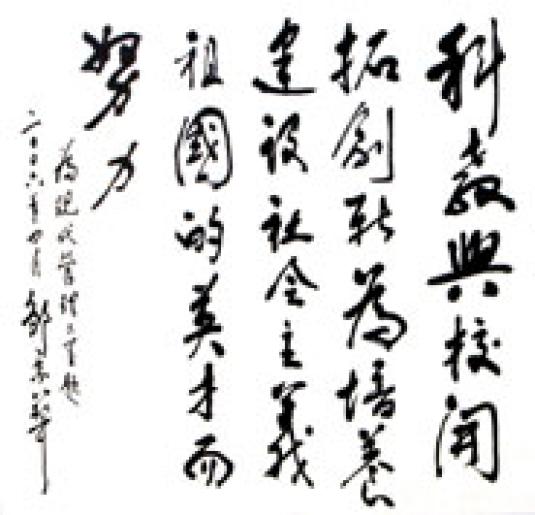 科教興校開
拓創新為培養
建設社会主義
祖國的英才而
努力
為現代管理三十題
二〇〇六年四月